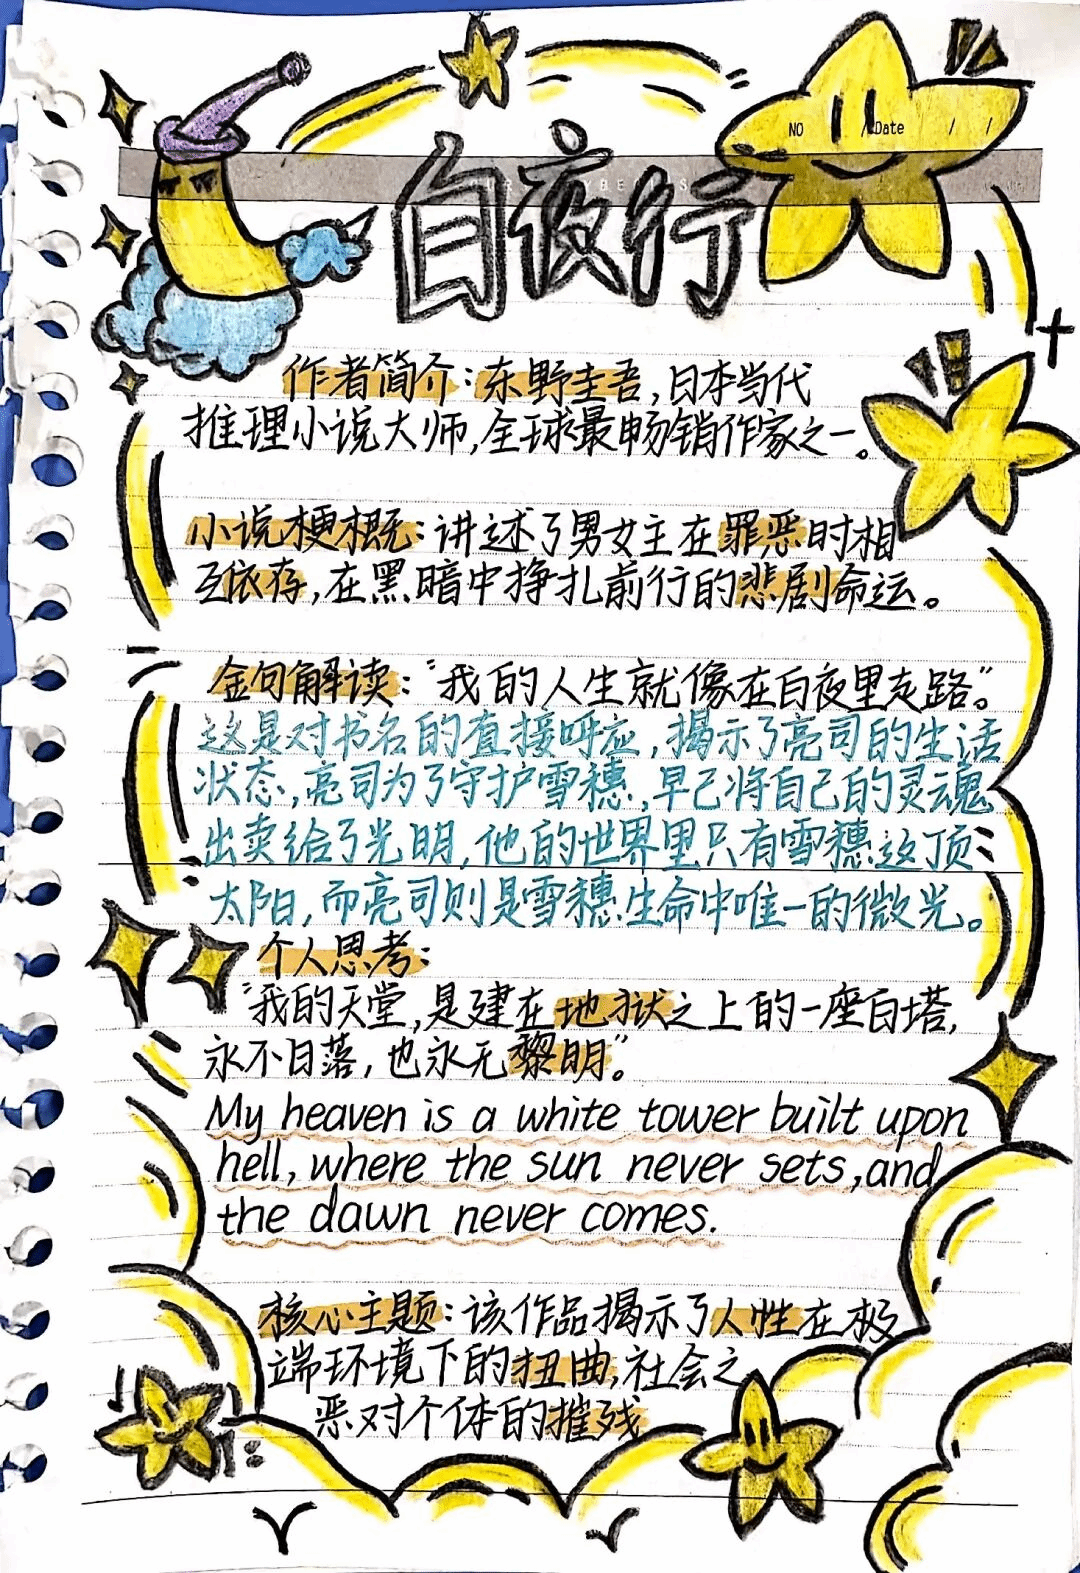 NO / Date / /
白夜行
作者简介：东野圭吾，日本当代
推理小说大师，全球最畅销作家之一。
小说梗概：讲述了男女主在罪恶时相
互依存，在黑暗中挣扎前行的悲剧命运。
金句解读：“我的人生就像在白夜里走路。”
这是对书名的直接呼应，揭示了亮司的生活
状态，亮司为了守护雪穗，早已将自己的灵魂
出卖给了光明，他的世界里只有雪穗这顶
太阳，而亮司则是雪穗生命中唯一的微光。
个人思考：
“我的天堂，是建在地狱之上的一座白塔，
永不日落，也永无黎明”。
My heaven is a white tower built upon
hell, where the sun never sets, and
the dawn never comes.
核心主题：该作品揭示了人性在极
端环境下的扭曲，社会之
恶对个体的摧残